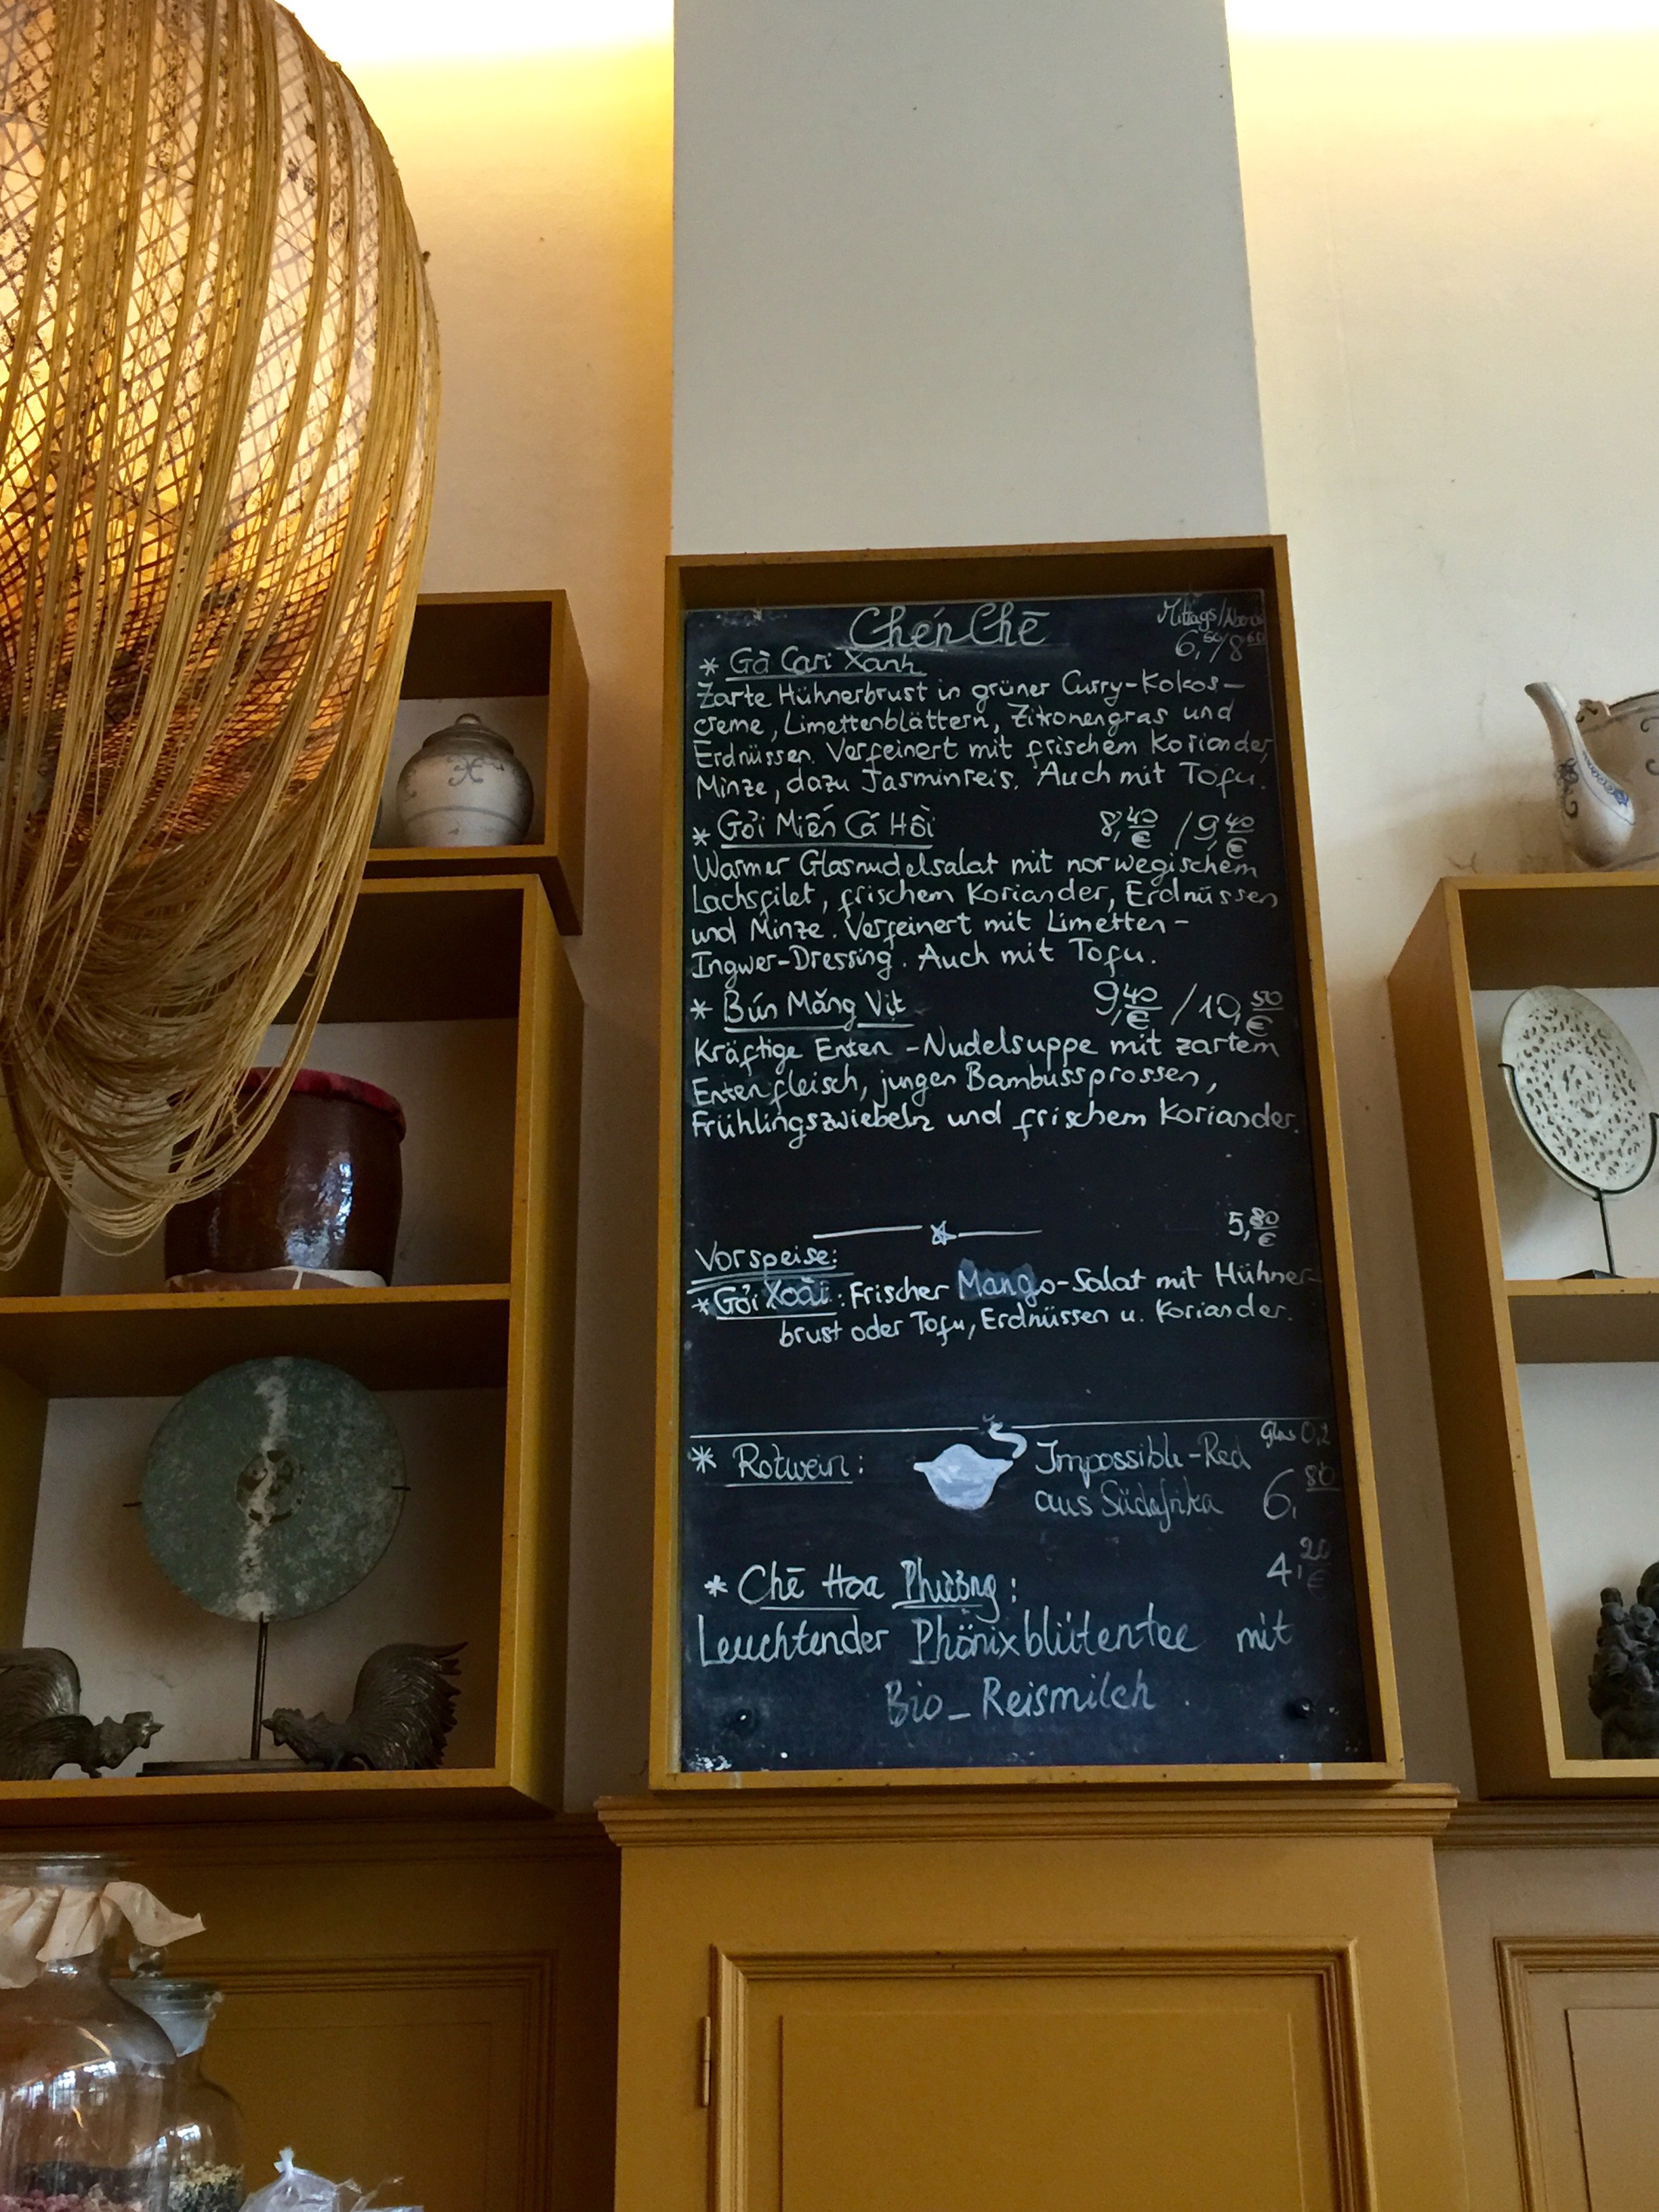 Chén Chè
Mittags/Abend
6,50/8,60
* Gà Cari Xanh
Zarte Hühnerbrust in grüner Curry-Kokos-
creme, Limettenblättern, Zitronengras und
Erdnüssen. Verfeinert mit frischem Koriander,
Minze, dazu Jasminreis. Auch mit Tofu.
* Gỏi Miến Cá Hồi 8,40 € / 9,40 €
Warmer Glasnudelsalat mit norwegischem
Lachsfilet, frischem Koriander, Erdnüssen
und Minze. Verfeinert mit Limetten-
Ingwer-Dressing. Auch mit Tofu.
* Bún Măng Vịt 9,40 € / 10,50 €
Kräftige Enten-Nudelsuppe mit zartem
Entenfleisch, jungen Bambussprossen,
Frühlingszwiebeln und frischem Koriander.
5,80 €
Vorspeise:
* Gỏi Xoài: Frischer Mango-Salat mit Hühner-
brust oder Tofu, Erdnüssen u. Koriander.
Glas 0,2
* Rotwein: Impossible-Red
aus Südafrika 6,80
4,20 €
* Chè Hoa Phượng:
Leuchtender Phönixblütentee mit
Bio_Reismilch.